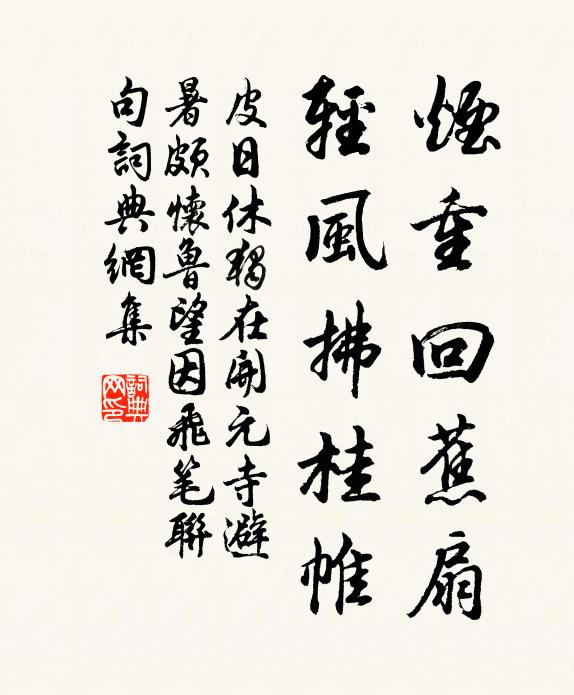 煙重回蕉扇
輕風拂桂帷
皮日休獨在開元寺避
暑頗懷魯望因飛笔聯
句詞典網集
詞典网印